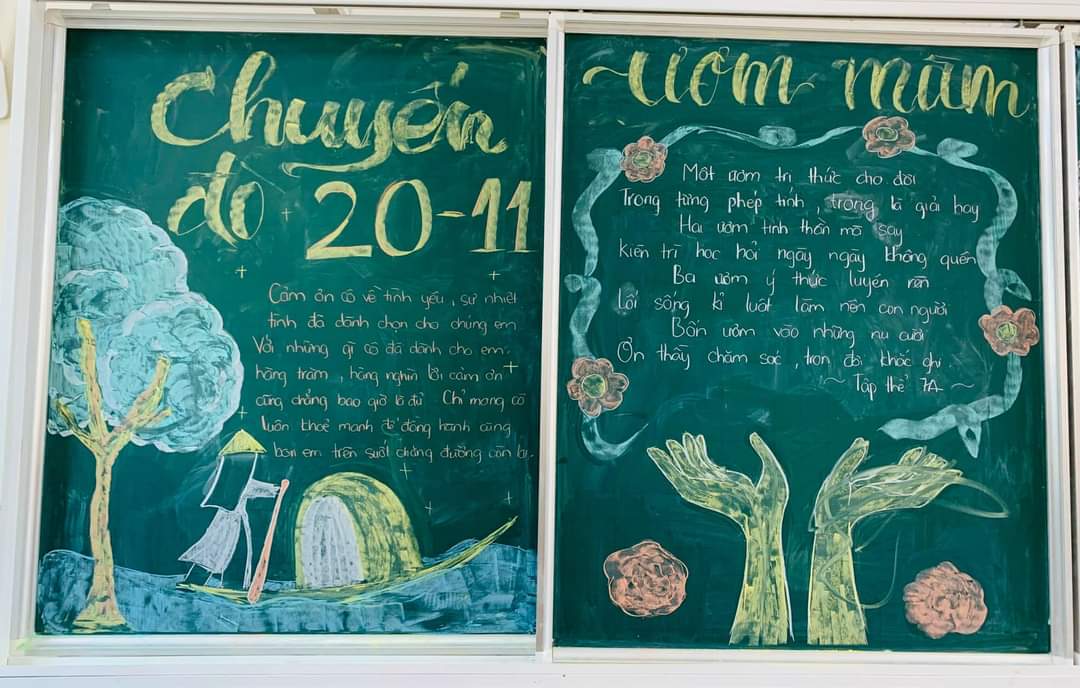 Chuyến
đò 20-11
Cảm ơn cô về tình yêu, sự nhiệt
tình đã dành chọn cho chúng em
Với những gì cô đã dành cho em.
hàng trăm, hàng nghìn lời cảm ơn
cũng chẳng bao giờ là đủ Chỉ mong cô
luôn khoẻ mạnh để đồng hành cùng
bọn em trên suốt chặng đường còn lại.
Ươm mầm
Một ươm tri thức cho đời
Trong từng phép tính, trong lá giải bay
Hai ươm tinh thần mê say
Kiên trì học hỏi ngày ngày không quên
Ba ươm ý thức luyện rèn
Lối sống kỉ luật làm nên con người
Bốn ươm vào những nụ cười
Ơn thầy chăm sóc, trọn đời khắc ghi.
~ Tập thể 7A ~